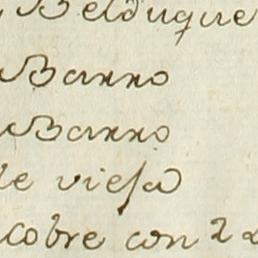 Belduque
Barro
Barro
de vieja
cobre con 2